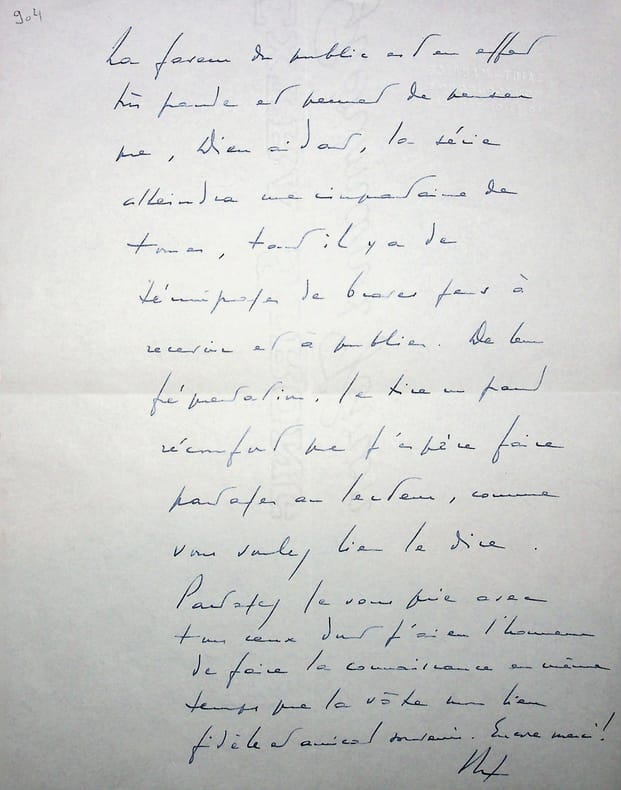 904
La faveur du public est en effet
très grande et permet de penser
que, Dieu aidant, la série
atteindra une cinquantaine de
tomes, tant il y a de
témoignages de braves gens à
recevoir et à publier. De leur
fréquentation, je tire un grand
réconfort que j'espère faire
partager au lecteur, comme
vous voulez bien le dire.
Partagez je vous prie avec
tous ceux dont j'ai eu l'honneur
de faire la connaissance en même
temps que la vôtre mon bien
fidèle et amical souvenir. Encore merci!